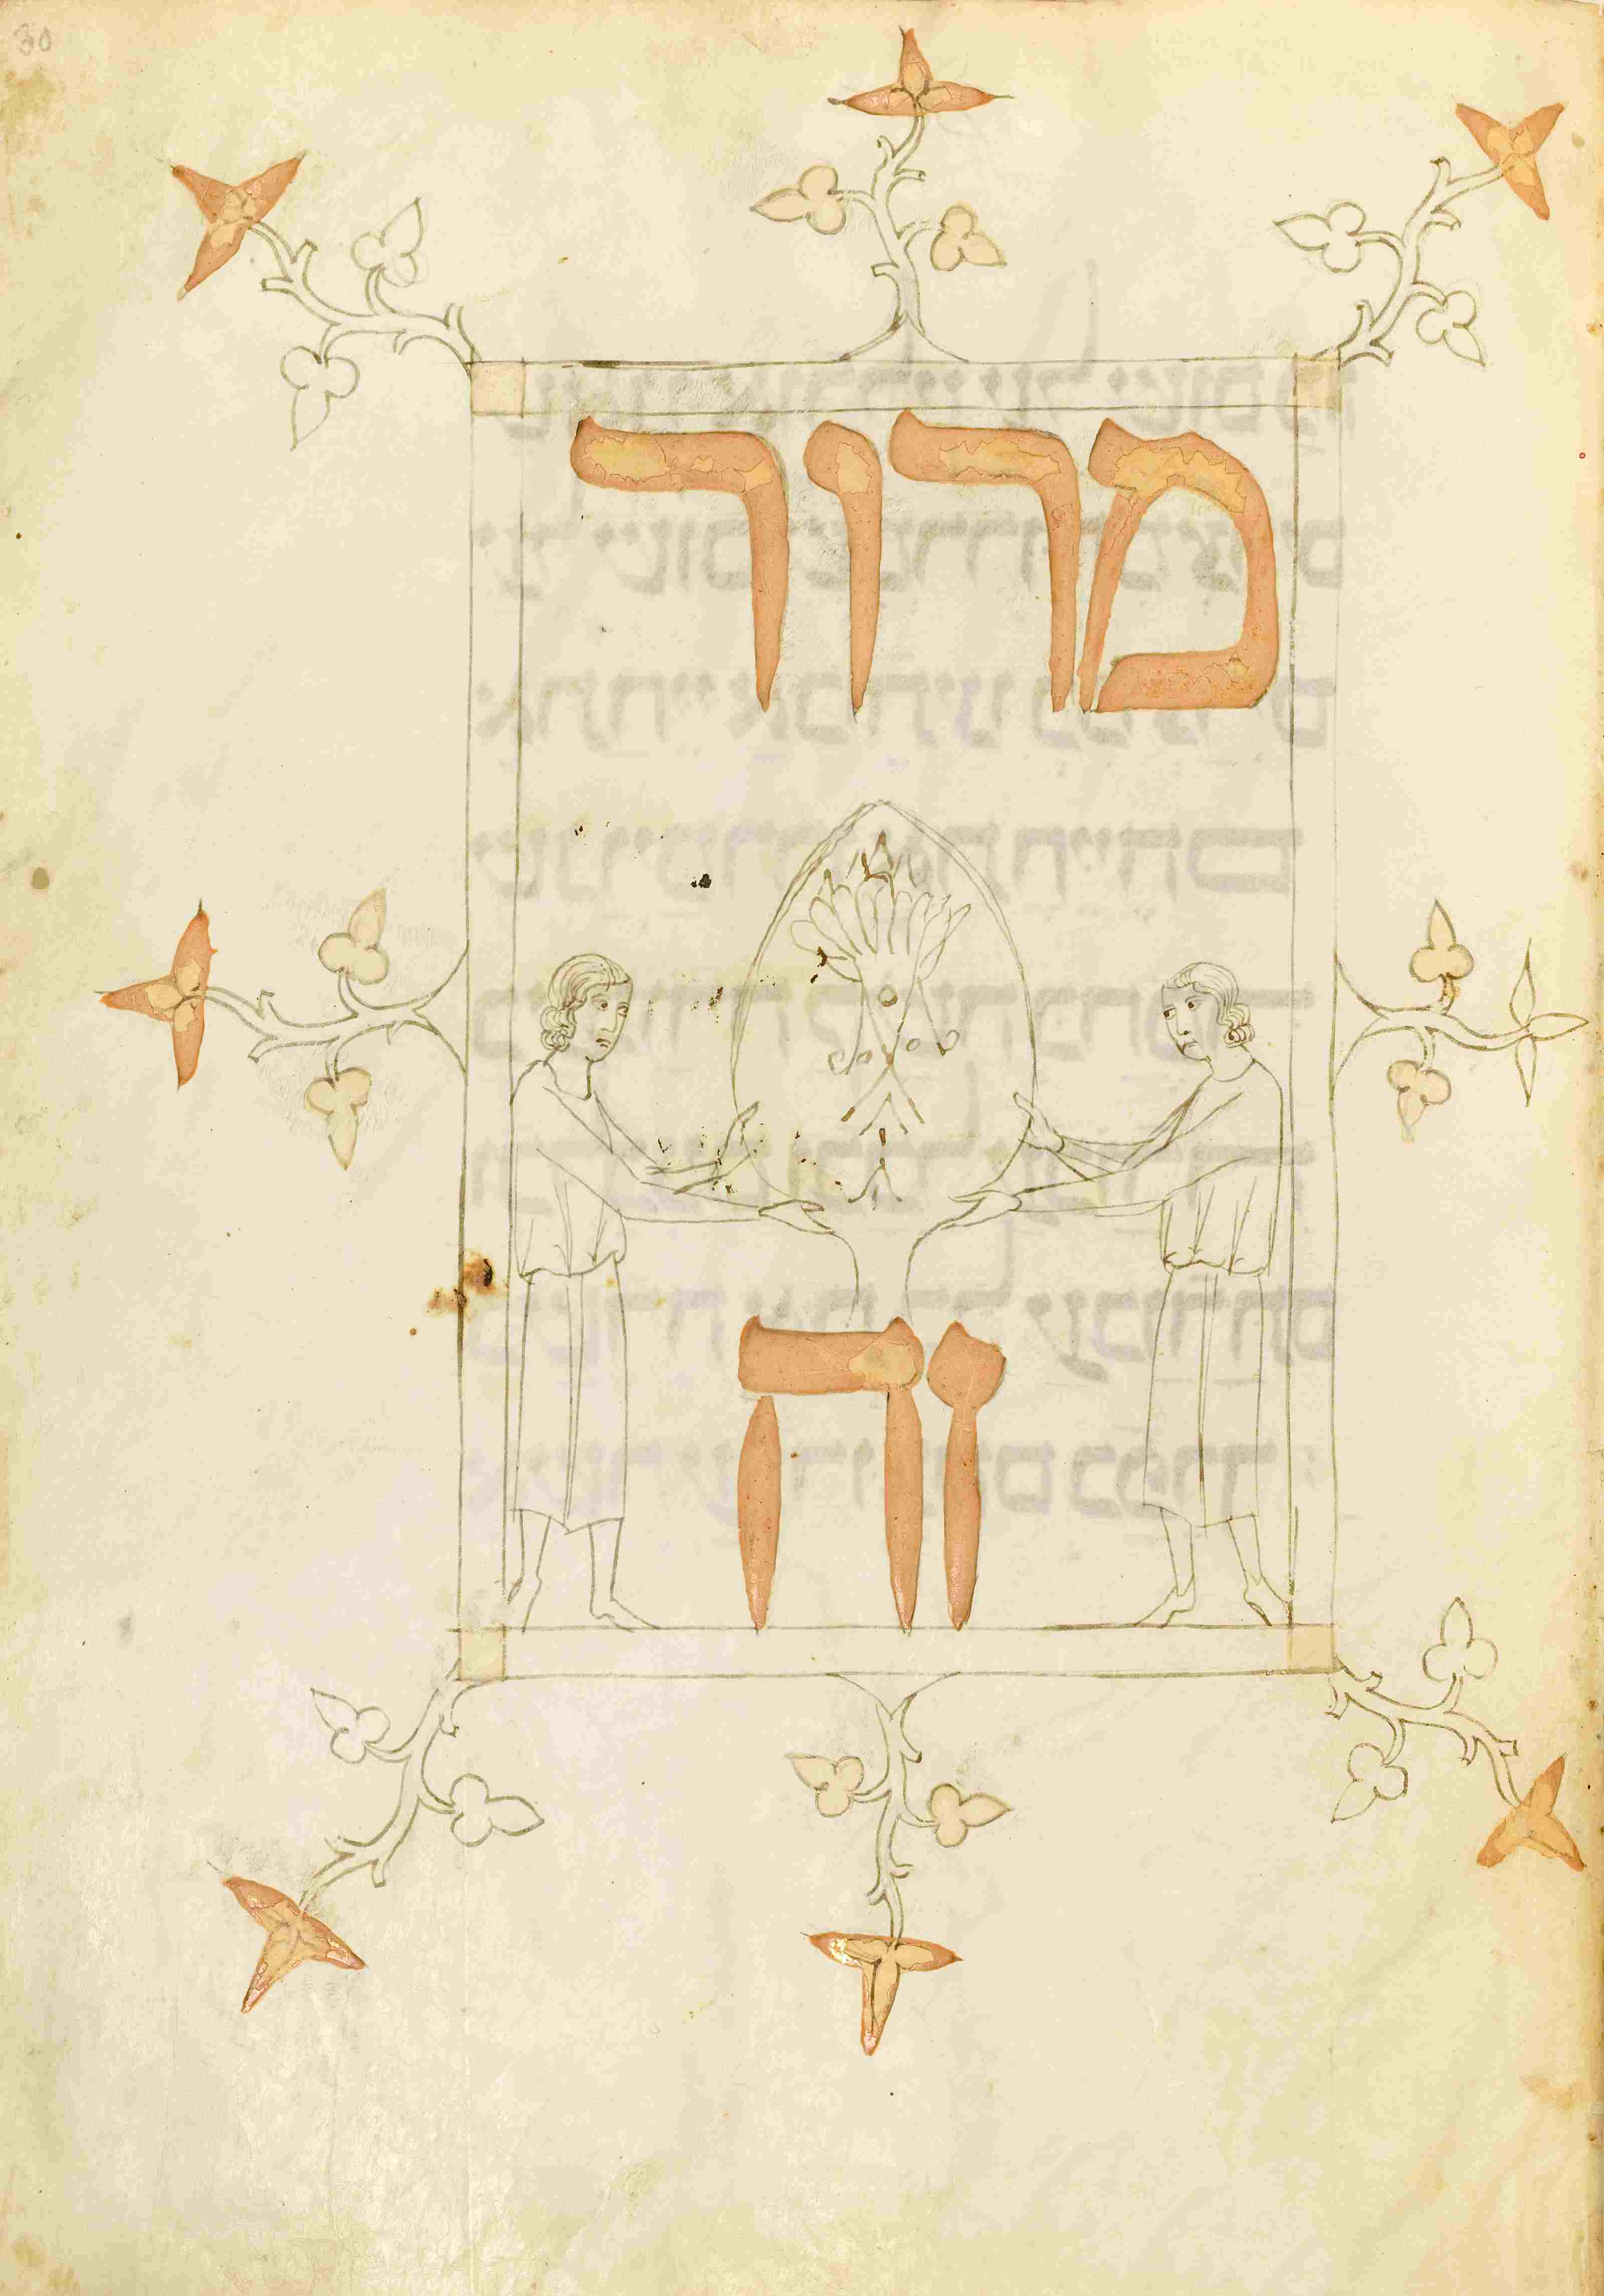 30
מרור
זה